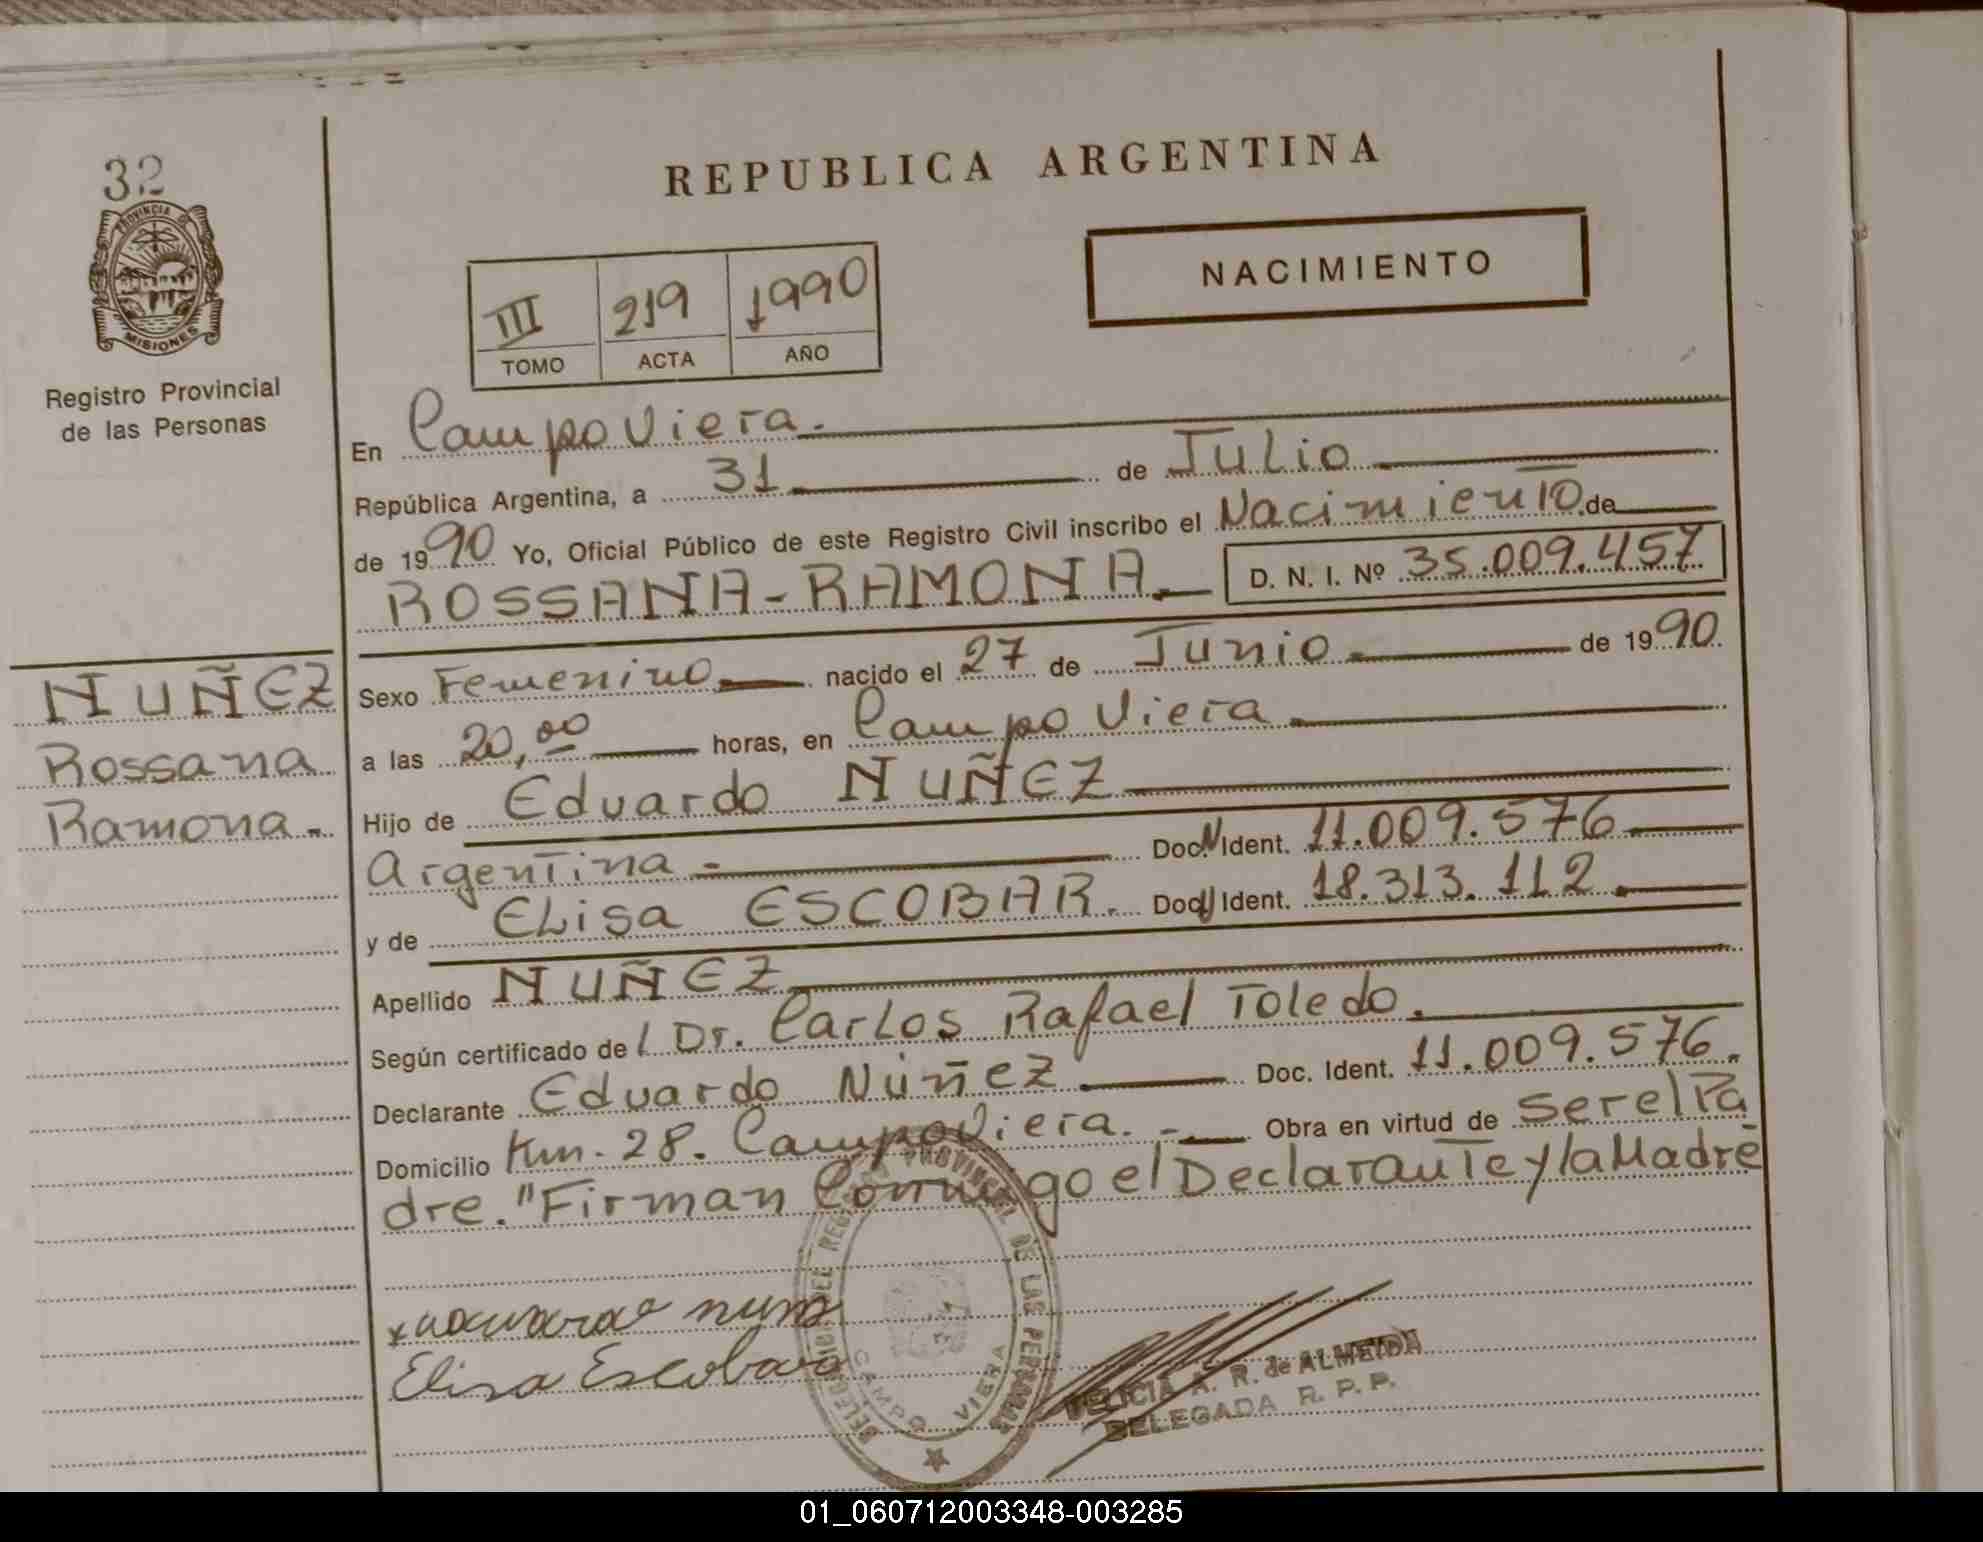 32
PROVINCIA DE
MISIONES
Registro Provincial
de las Personas
REPUBLICA ARGENTINA
NACIMIENTO
III 219 1990
TOMO ACTA AÑO
En Campo Viera.
República Argentina, a 31 de Julio
de 1990 Yo, Oficial Público de este Registro Civil inscribo el Nacimiento de
ROSSANA-RAMONA.- D. N. I. Nº 35.009.457
NUÑEZ
Rossana
Ramona.-
Sexo Femenino nacido el 27 de Junio.- de 1990.
a las 20,00 horas, en Campo Viera.
Hijo de Eduardo NUÑEZ
Argentina.- Doc. N Ident. 11.009.576
y de ELisa ESCOBAR. Doc. U Ident. 18.313.112.
Apellido NUÑEZ
Según certificado de l Dr. Carlos Rafael Toledo.
Declarante Eduardo Núñez Doc. Ident. 11.009.576.
Domicilio Km. 28. Campo Viera.- Obra en virtud de ser el Pa
dre. "Firman Conmigo el Declarante y la Madre
Elisa Escobar
DELEGACION DEL REGISTRO PROVINCIAL DE LAS PERSONAS
CAMPO VIERA
FELICIA A. R. de ALMEIDA
DELEGADA R. P. P.
01_060712003348-003285